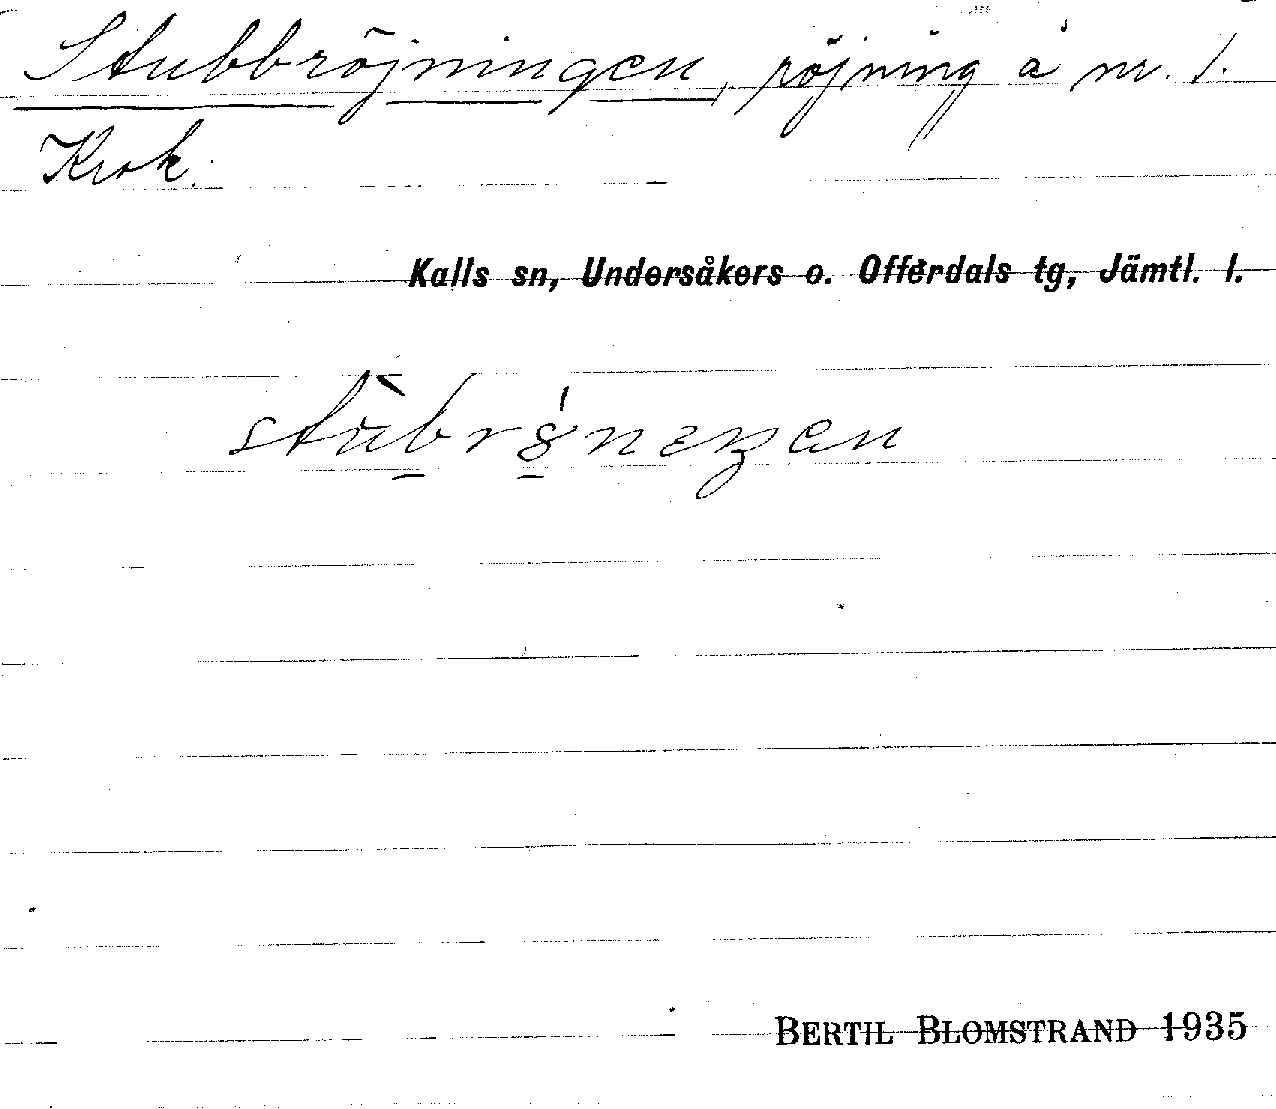 Stubbröjningen, röjning å nr. 1.
Krok.
Kalls sn, Undersåkers o. Offerdals tg, Jämtl. l.
BERTIL BLOMSTRAND 1935